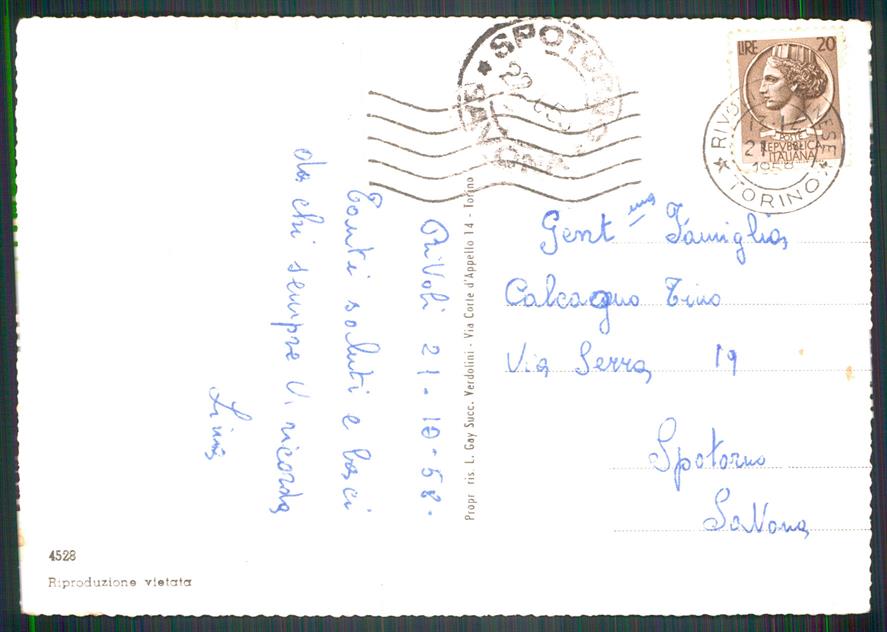 Rivoli 21-10-58.
Tanti saluti e baci
da chi sempre Vi ricorda
Lina
Gent.ma Famiglia
Calcagno Tino
Via Serra 19
Spotorno
Savona
LIRE 20
POSTE
REPVBBLICA
ITALIANA
TORINO
1958
SPOTORNO
Propr ris. L. Gay Succ. Verdolini - Via Corte d'Appello 14 - Torino
4528
Riproduzione vietata